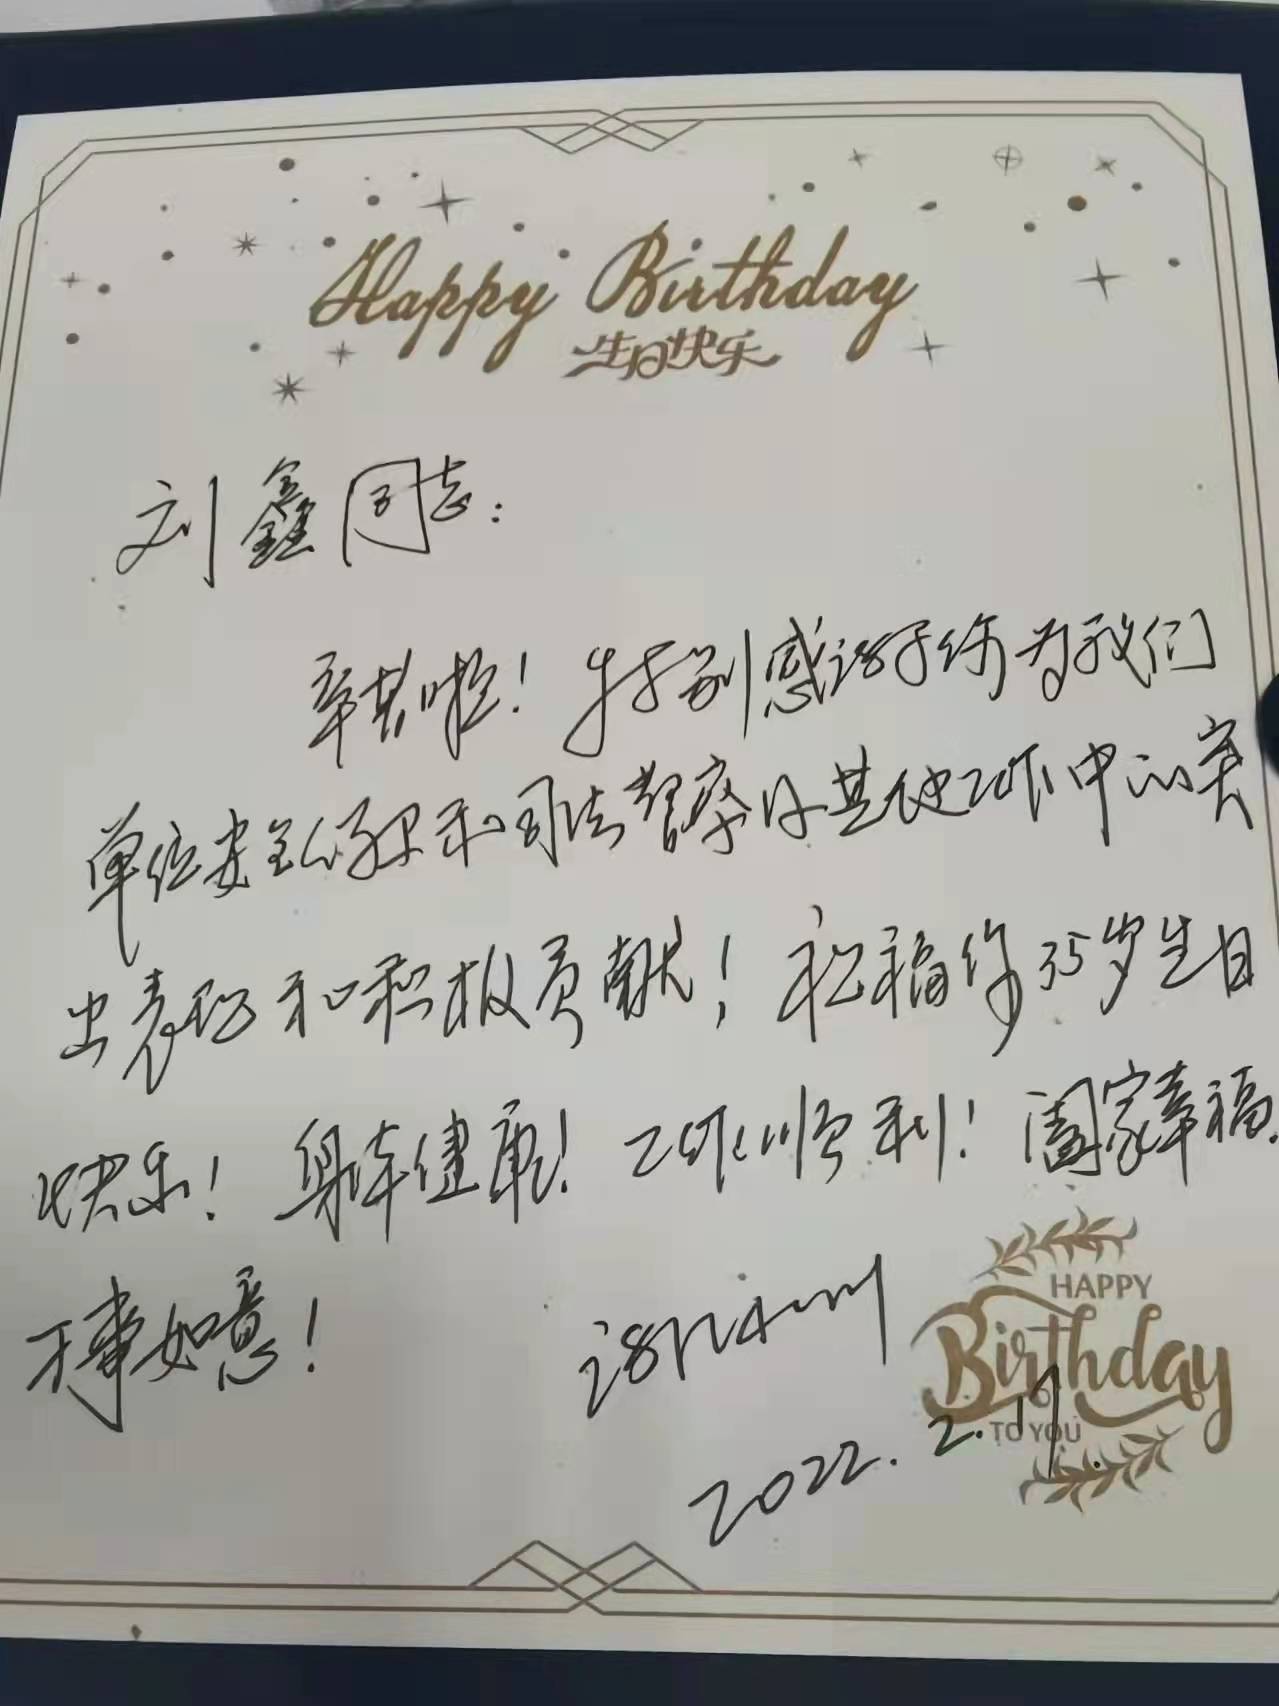 Happy Birthday
生日快乐
刘鑫同志:
辛苦啦！特别感谢你为我们
单位安全保卫和司法警察及其他工作中的突
出表现和积极贡献！祝福你35岁生日
快乐！身体健康！工作顺利！阖家幸福
万事如意！
HAPPY
Birthday
TO YOU
2022.2.17.